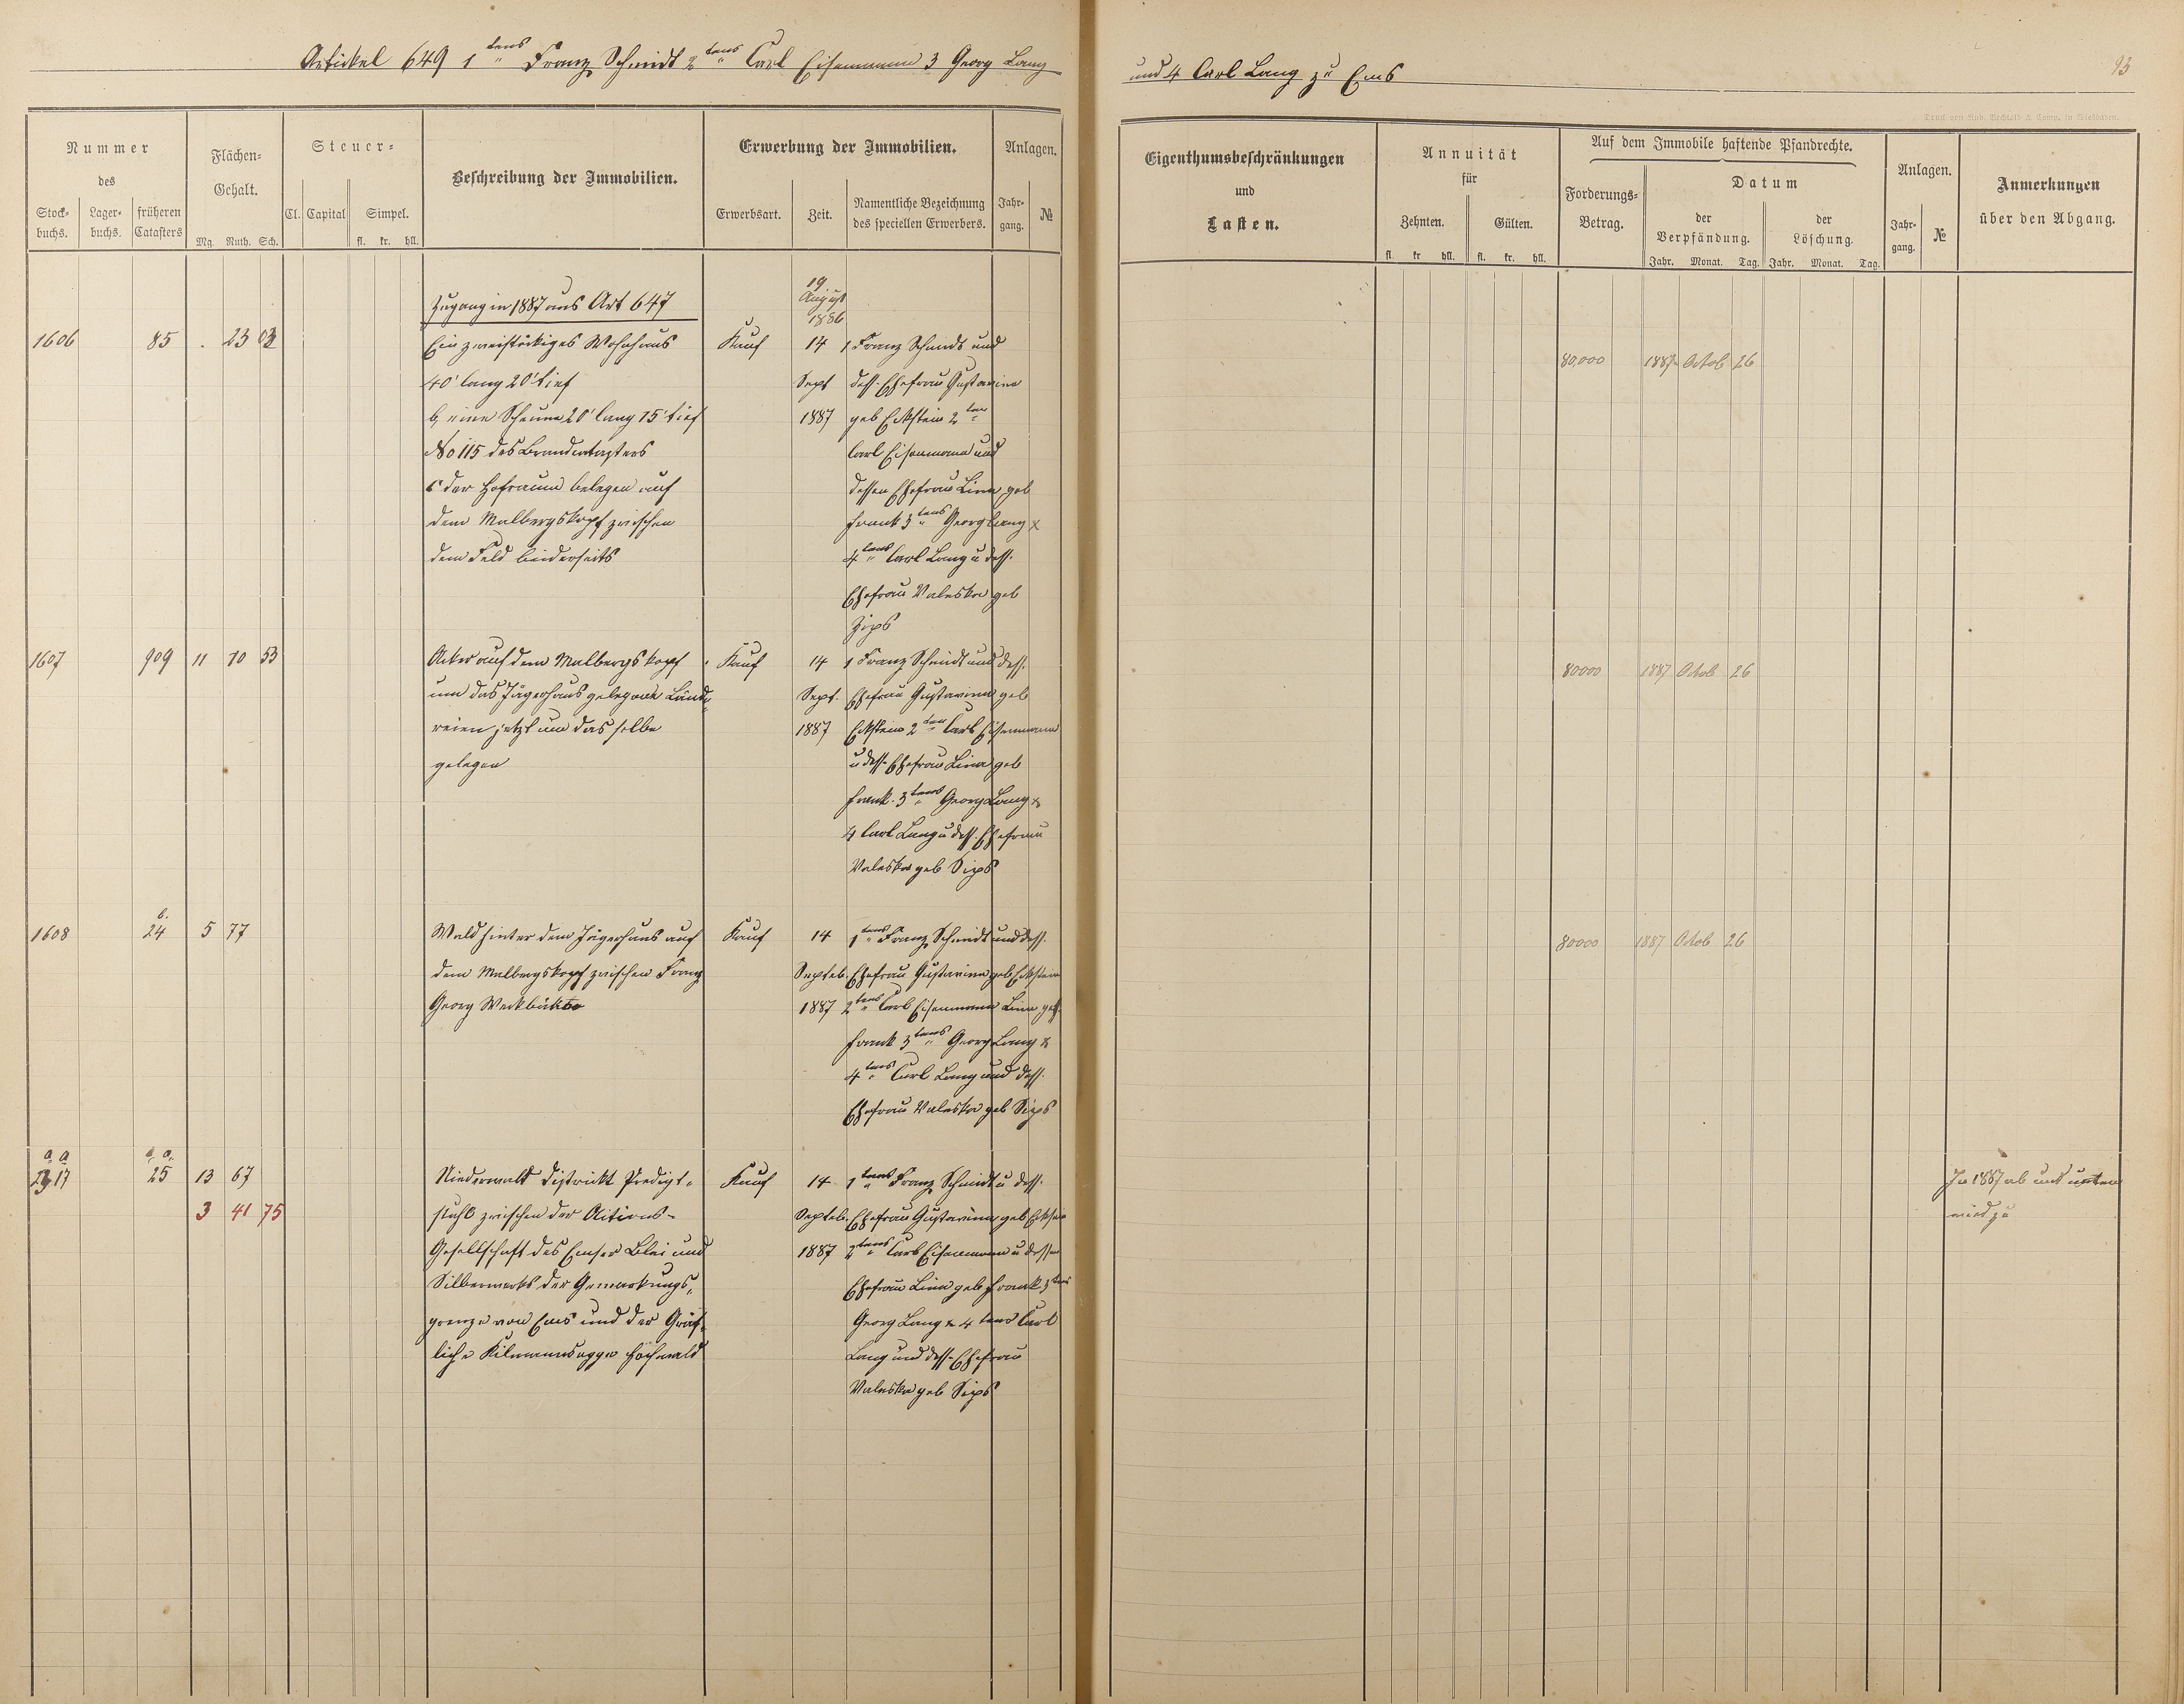 Artikel 649 1tens Franz Schmidt 2tens Carl Eisenmann 3 Georg Lang
und 4 Carl Lang zu Ems
93
Druck von Rud. Bechtold & Comp. in Wiesbaden.
Nummer
des
Stock-
buchs.
Lager-
buchs.
früheren
Catasters
Flächen-
Gehalt.
Mg. Ruth. Sch.
Steuer-
Cl. Capital Simpel.
fl. kr. hll.
Beschreibung der Immobilien.
Erwerbung der Immobilien.
Erwerbsart. Zeit.
Namentliche Bezeichnung
des speciellen Erwerbers.
Anlagen.
Jahr-
gang.
№
Eigenthumsbeschränkungen
und
Lasten.
Annuität
für
Zehnten. Gülten.
fl. kr. hll. fl. kr. hll.
Auf dem Immobile haftende Pfandrechte.
Forderungs-
Betrag.
Datum
der
Verpfändung.
der
Löschung.
Jahr. Monat. Tag. Jahr. Monat. Tag.
Anlagen.
Jahr-
gang.
№
Anmerkungen
über den Abgang.
Zugang in 1887 aus Art 647
19
August
1886
1606 85 . 23 03
Ein zweistöckiges Wohnhaus
40' lang 20' tief
b, eine Scheune 20' lang 15' tief
No 115 des Brandcatasters
c der Hofraum belegen auf
dem Malbergskopf zwischen
dem Feld beiderseits
Kauf
14
Sept
1887
1 Franz Schmidt und
dess. Ehefrau Gustavina
geb Eckstein 2ten
Carl Eisenmann und
dessen Ehefrau Lina geb
Frank 3tens Georg Lang &
4tens Carl Lang u dess.
Ehefrau Valeska geb
Zips
80,000 1887 Octob 26
1607 909 11 10 53
Acker auf dem Malbergskopf
um das Jägerhaus gelegene Lände-
reien jetzt um dasselbe
gelegen
Kauf
14
Sept.
1887
1 Franz Schmidt und dess.
Ehefrau Gustavina geb
Eckstein 2ten Carl Eisenmann
u dess. Ehefrau Lina geb
Frank. 3tens Georg Lang &
4 Carl Lang u dess. Ehefrau
Valeska geb Sips
80000 1887 Octob 26
1608 b. 24 5 77
Wald hinter dem Jägerhaus auf
dem Malbergskopf zwischen Franz
Georg
Kauf
14
Septeb.
1887
1tens Franz Schmidt und dess.
Ehefrau Gustavina geb Eckstein
2tens Carl Eisenmann Lina geb.
Frank 3tens Georg Lang &
4tens Carl Lang und dess.
Ehefrau Valeska geb Sips
80000 1887 Octob 26
a a
a. a.
17 25 13 67
3 41 75
Niederwald Districkt Predigt-
stuhl zwischen der Actions-
Gesellschaft des Emser Blei und
Silberwerks der Gemarkungs-
grenze von Ems und der Gräf-
liche Kilmannsegge Hochwald
Kauf
14
Septeb.
1887
1tens Franz Schmidt u dess.
Ehefrau Gustavina geb Eckstein
2tens Carl Eisenmann u dessen
Ehefrau Lina geb Frank 3tens
Georg Lang & 4tens Carl
Lang und dess. Ehefrau
Valeska geb Sips
In 1887 ab und unten
wied zu